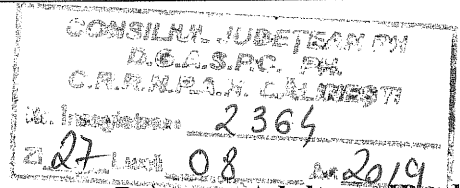 CONSILIUL JUDEȚEAN PH
D.G.A.S.P.C. PH.
C.R.R.N.P.A.H. CĂLINEȘTI
Nr. Înregistrare 2364
Zi 27 Luni 08 An 2019